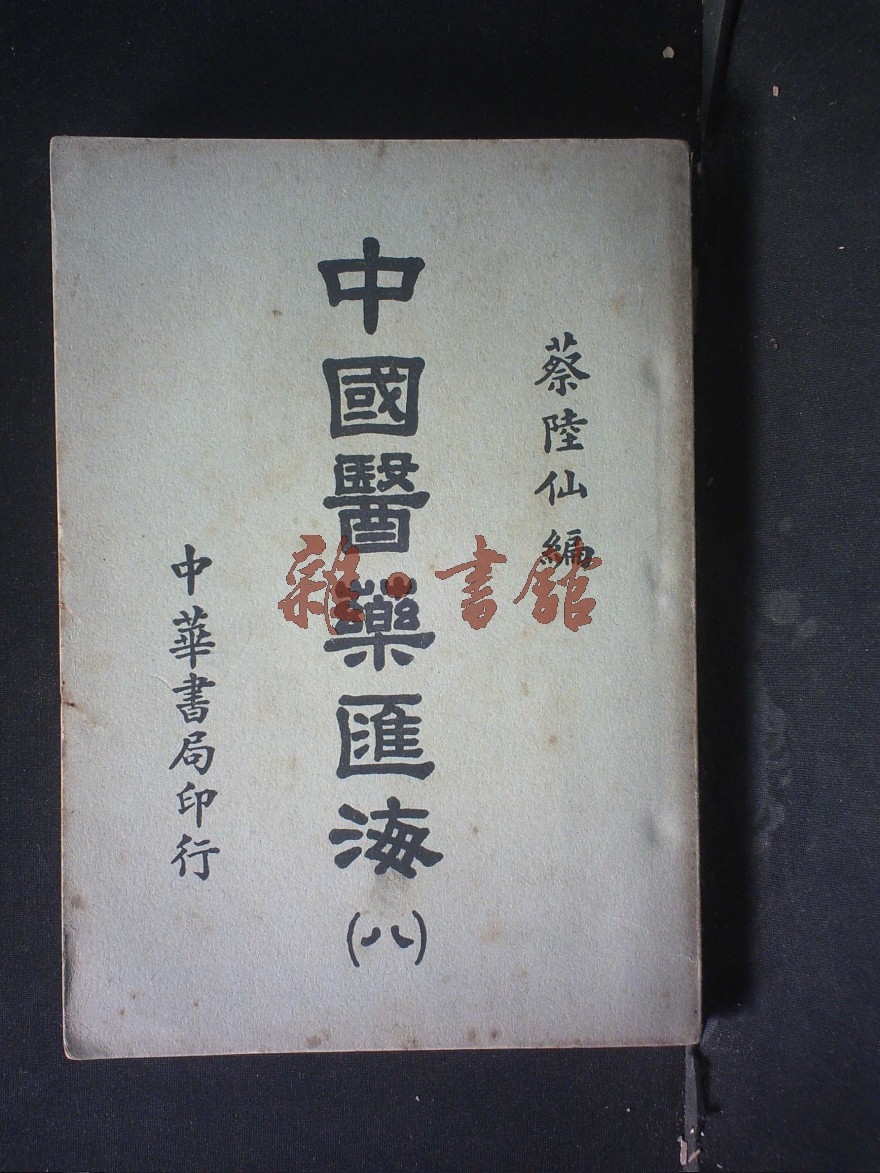 蔡陸仙編
中國醫藥匯海
(八)
中華書局印行
雜·書館